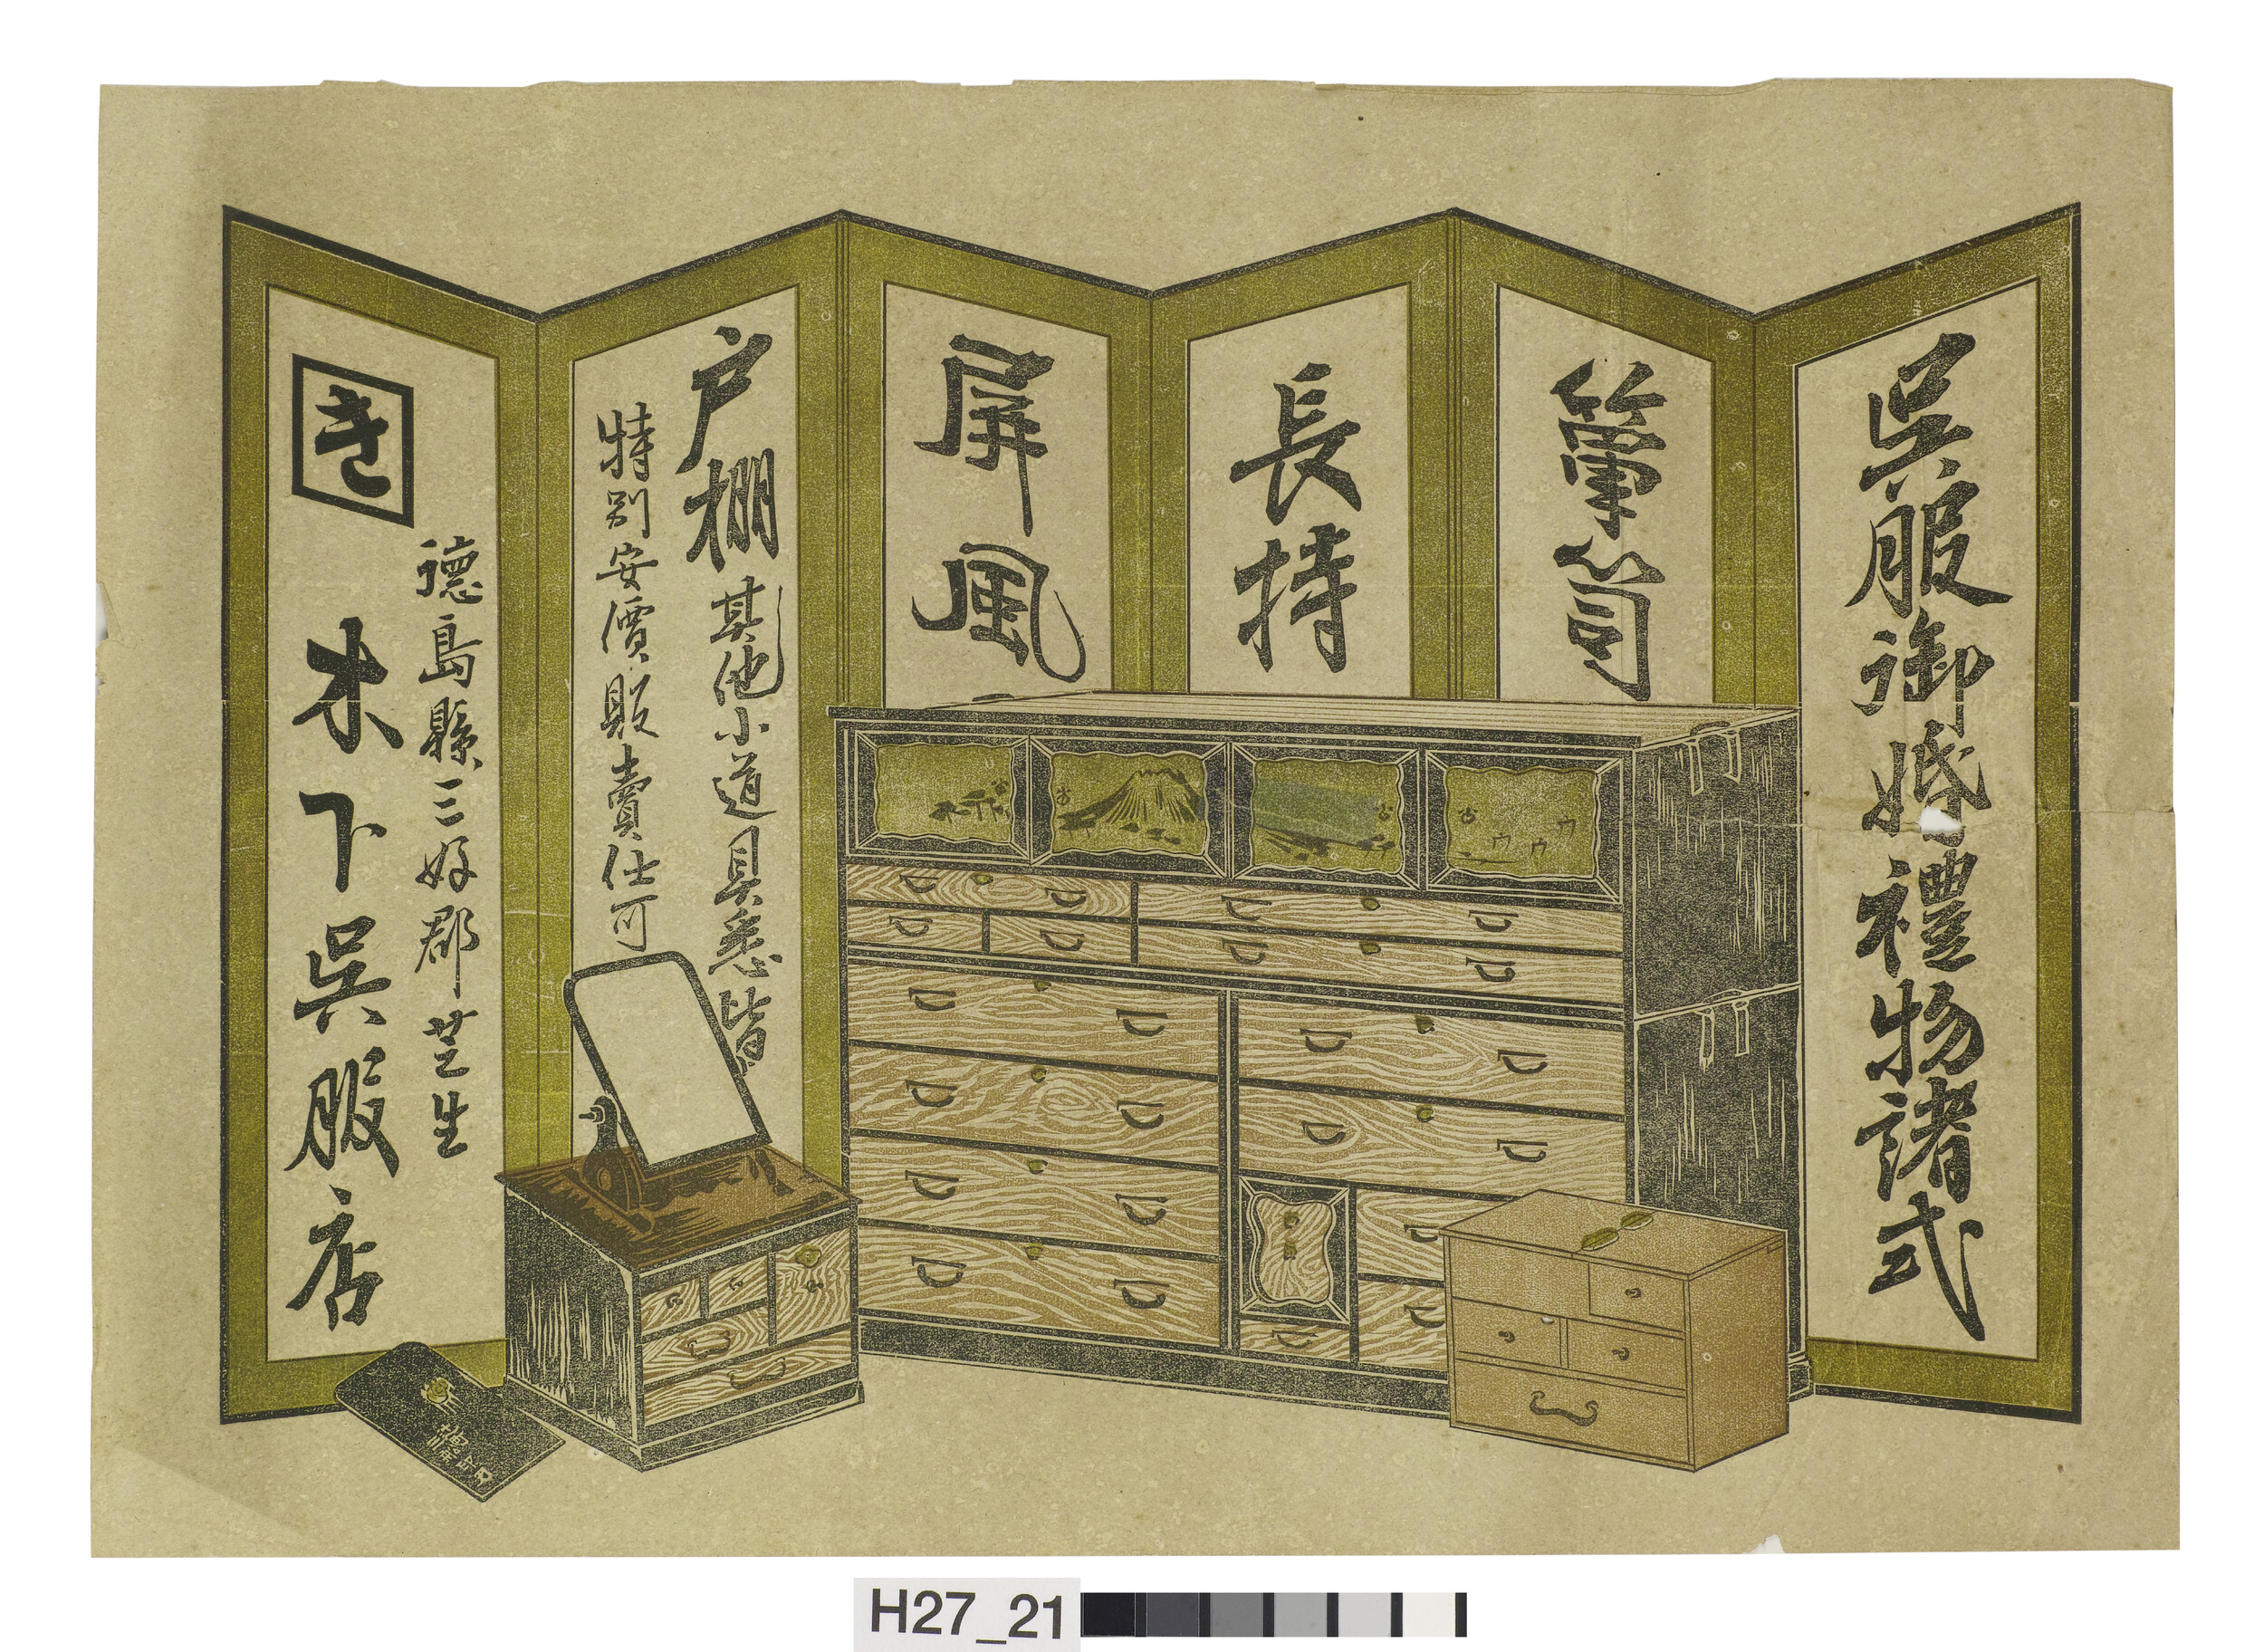 呉服御婚禮物諸式
簞笥
長持
屏風
戸棚 其他小道具悉皆
特別安價販賣仕可
徳島縣三好郡芝生
き
木下呉服店
H27_21